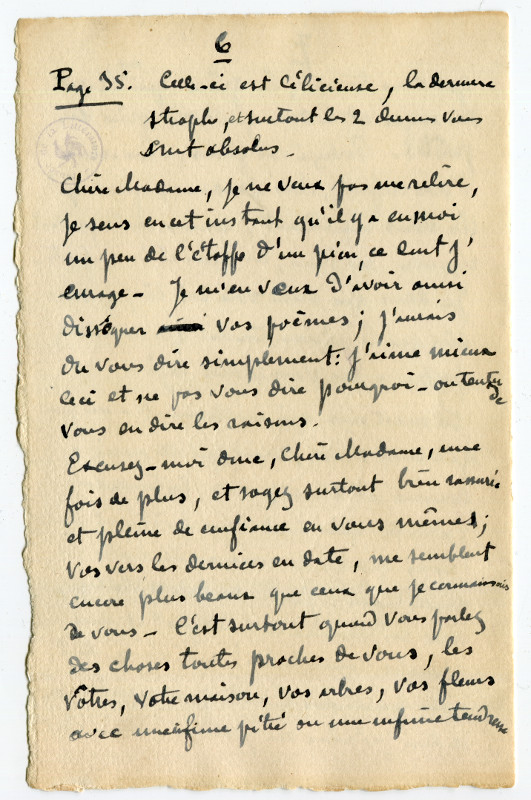 6
Page 35. Celle-ci est délicieuse, la dernière
strophe, et surtout les 2 derniers vers
sont absolus.
Chère Madame, je ne veux pas me relire,
je sens en cet instant qu'il y a en moi
un peu de l'étoffe d'un pion, ce dont j'
enrage - Je m'en veux d'avoir ainsi
disséquer vos poèmes ; j'aurais
du vous dire simplement : j'aime mieux
ceci et ne pas vous dire pourquoi - ou tenter de
vous en dire les raisons.
Excusez-moi donc, Chère Madame, une
fois de plus, et soyez surtout bien rassurée
et pleine de confiance en vous mêmes ;
vos vers les derniers en date, me semblent
encore plus beaux que ceux que je connaissais
de vous - C'est surtout quand vous parlez
des choses toutes proches de vous, les
vôtres, votre maison, vos arbres, vos fleurs
avec une infime pitié ou une infinie tendresse